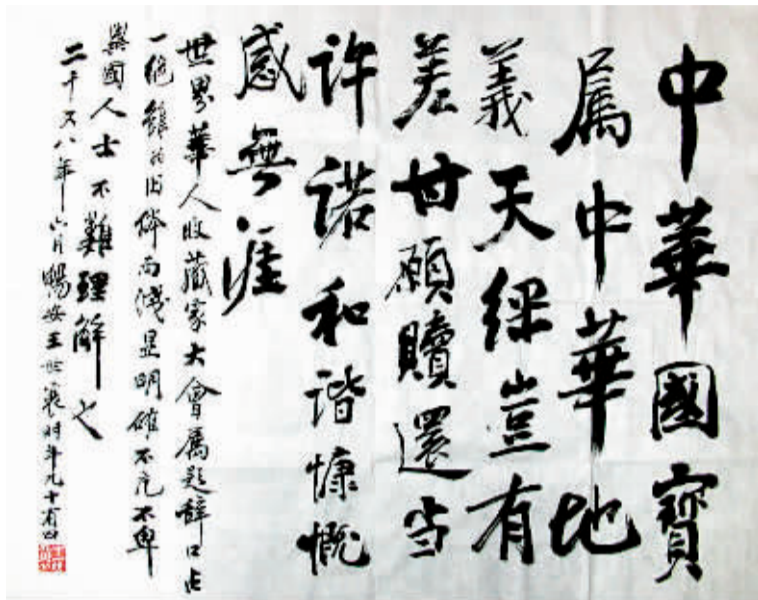 中華國寶
属中華地
義天经豈有
差甘願贖還当
许諾和谐慷慨
感無涯
世界華人收藏家大會属题辞口占
一绝雖为旧体而浅显明確不亢不卑
異國人士不難理解也
二千又八年六月暢安王世襄时年九十有四